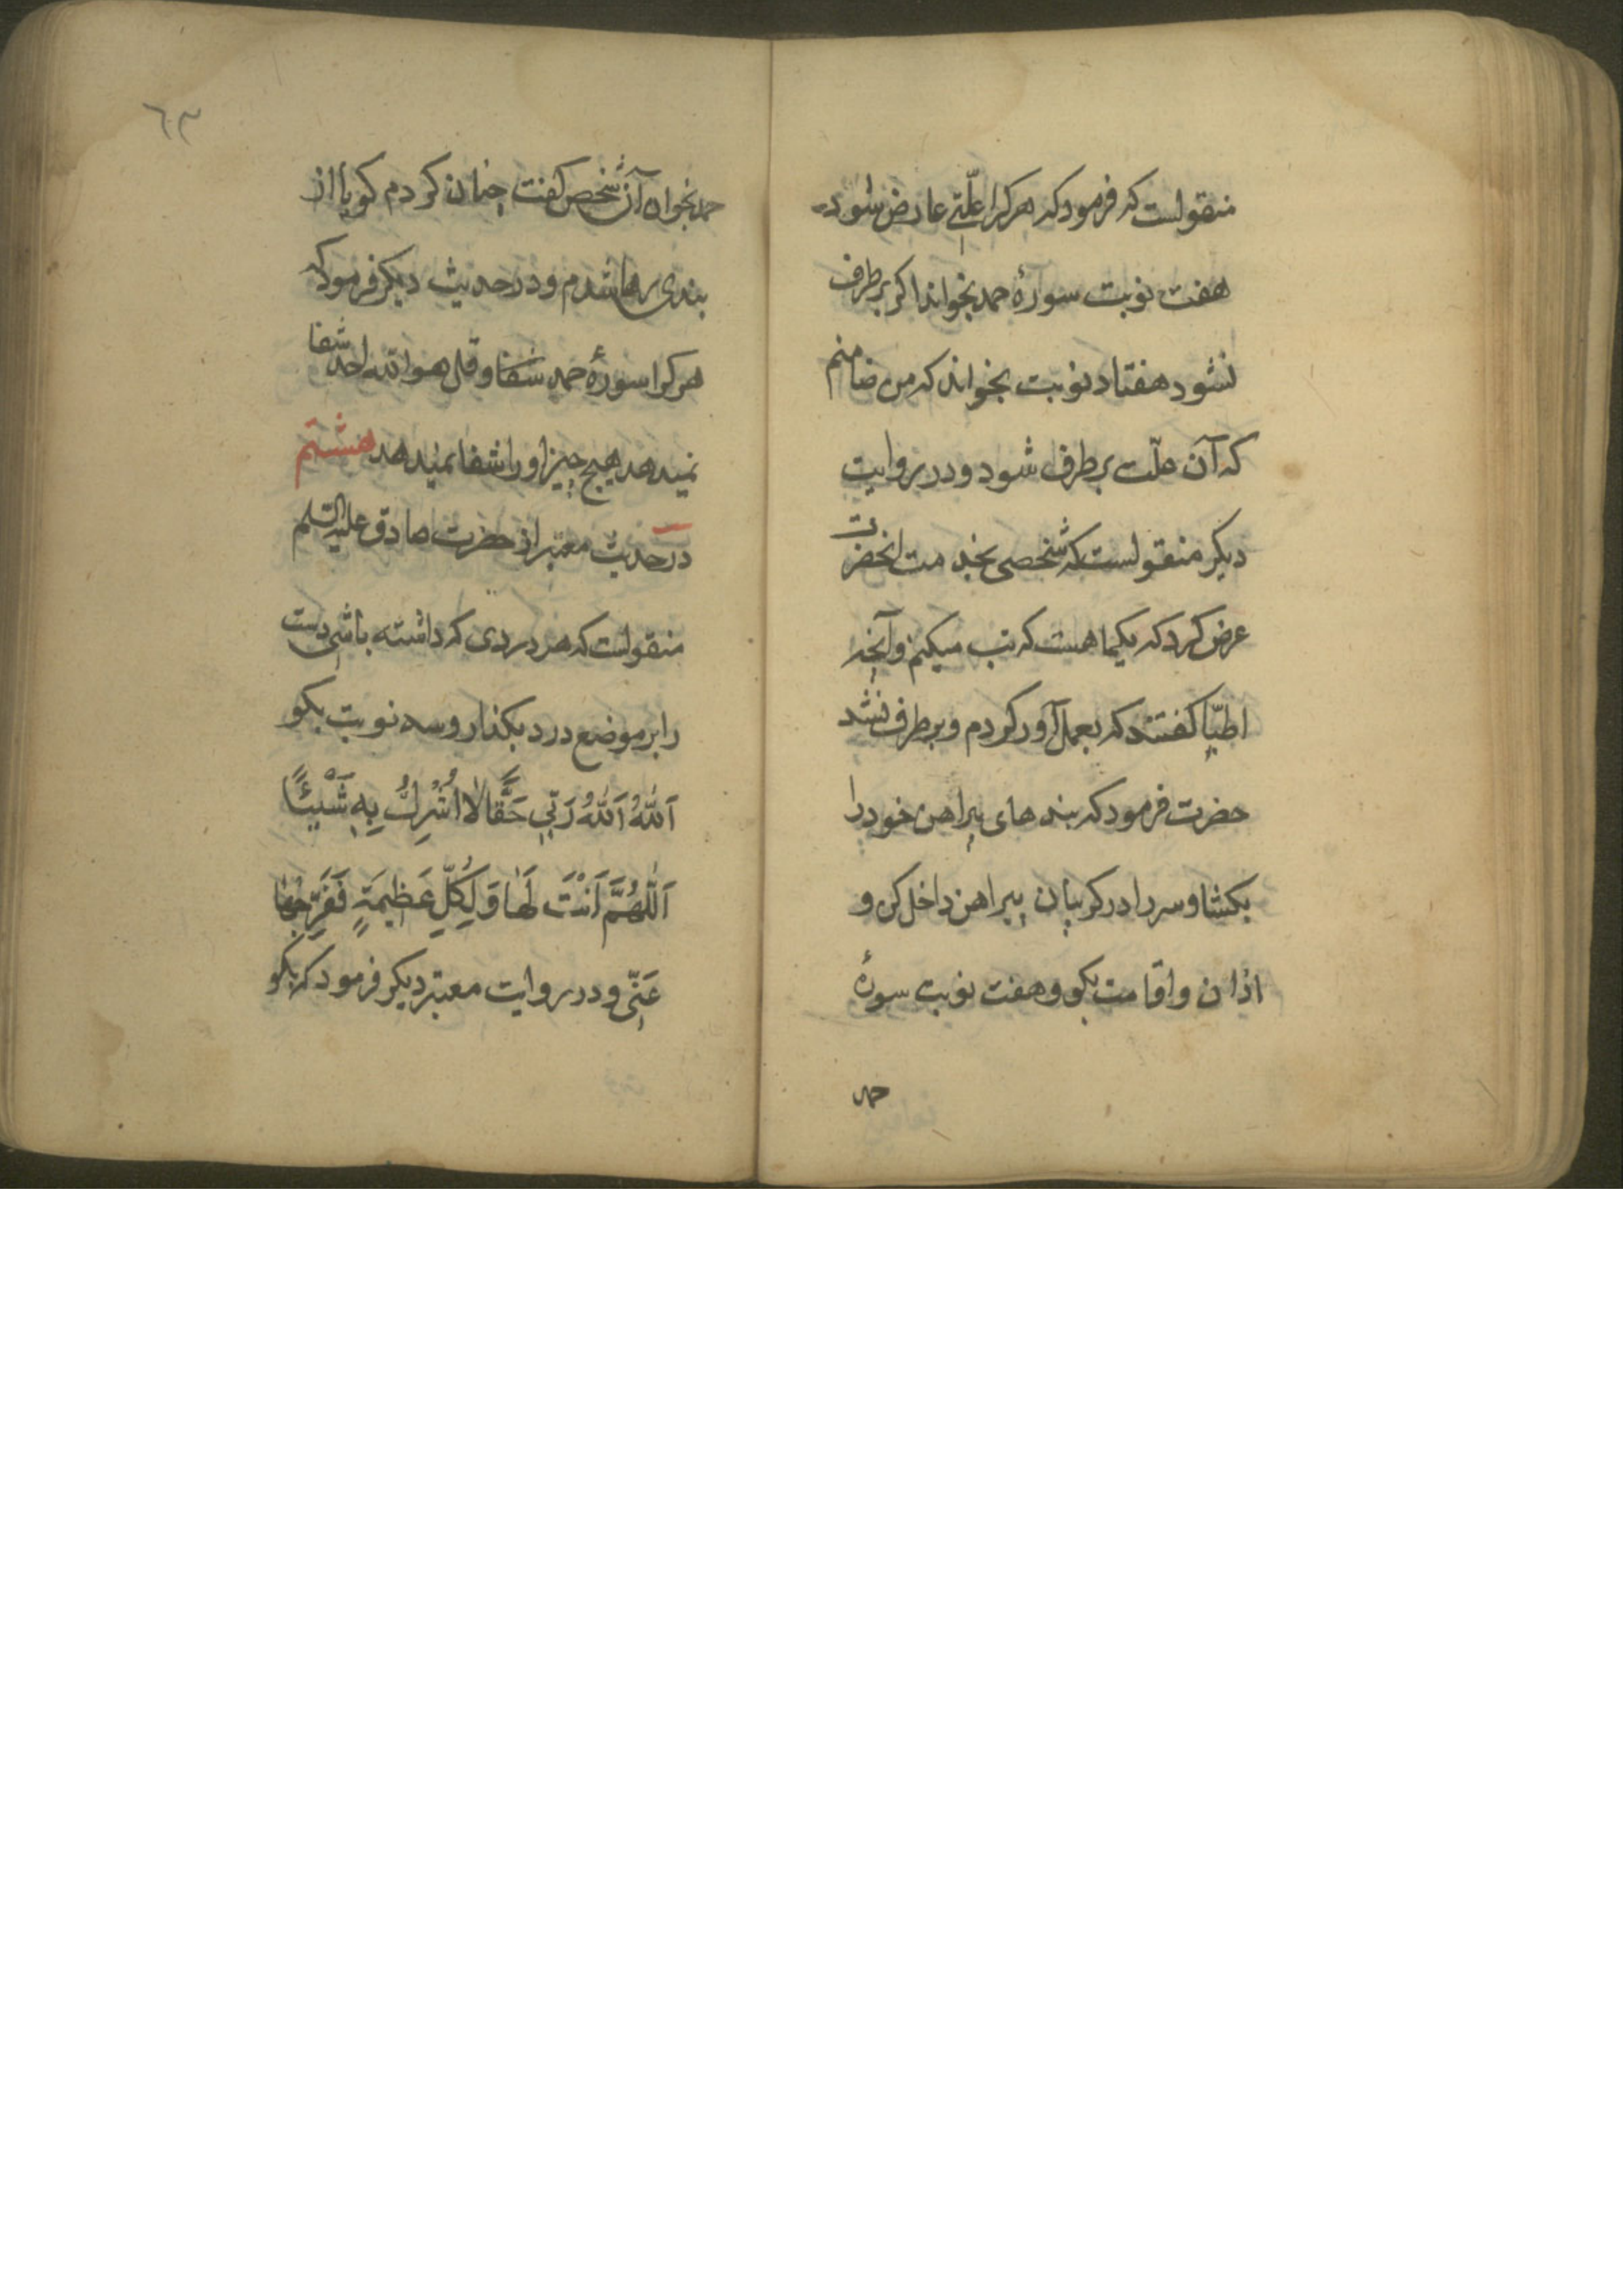 منقولست که فرمود که هرکرا علّتی عارض شود
هفت نوبت سورهٔ حمد بخواند اکر برطرف
نشود هفتاد نوبت بخواند که من ضامنم
که آن علّت برطرف شود و در روایت
دیکر منقولست که شخصی بخدمت انحضرت
عرض کرد که یکماهست که تب میکنم و آنچه
اطبّا کفتند که بعمل آور کردم و برطرف نشد
حضرت فرمود که بندهای پیراهن خود را
بکشا و سر را در کریبان پیراهن داخل کن و
اذان و اقامت بکو و هفت نوبت سورهٔ
حمد
٦٣
حمد بخوان آن شخص کفت چنان کردم کویا از
بندی رها شدم و در حدیث دیکر فرمود که
هرکرا سورهٔ حمد شفا و قل هو الله احد شفا
نمیدهد هیچ چیز او را شفا نمیدهد هشتم
در حدیث معتبر از حضرت صادق علیه السلم
منقولست که هر دردی که داشته باشی دست
را بر موضع درد بکذار و سه نوبت بکو
اَللّٰهُ اَللّٰهُ رَبّی حَقًّا لا اُشْرِكُ بِهِ شَیْئًا
اَللّٰهُمَّ اَنْتَ لَهَا وَ لِکُلِّ عَظیمَةٍ فَفَرِّجْهَا
عَنّی و در روایت معتبر دیکر فرمود که بکو